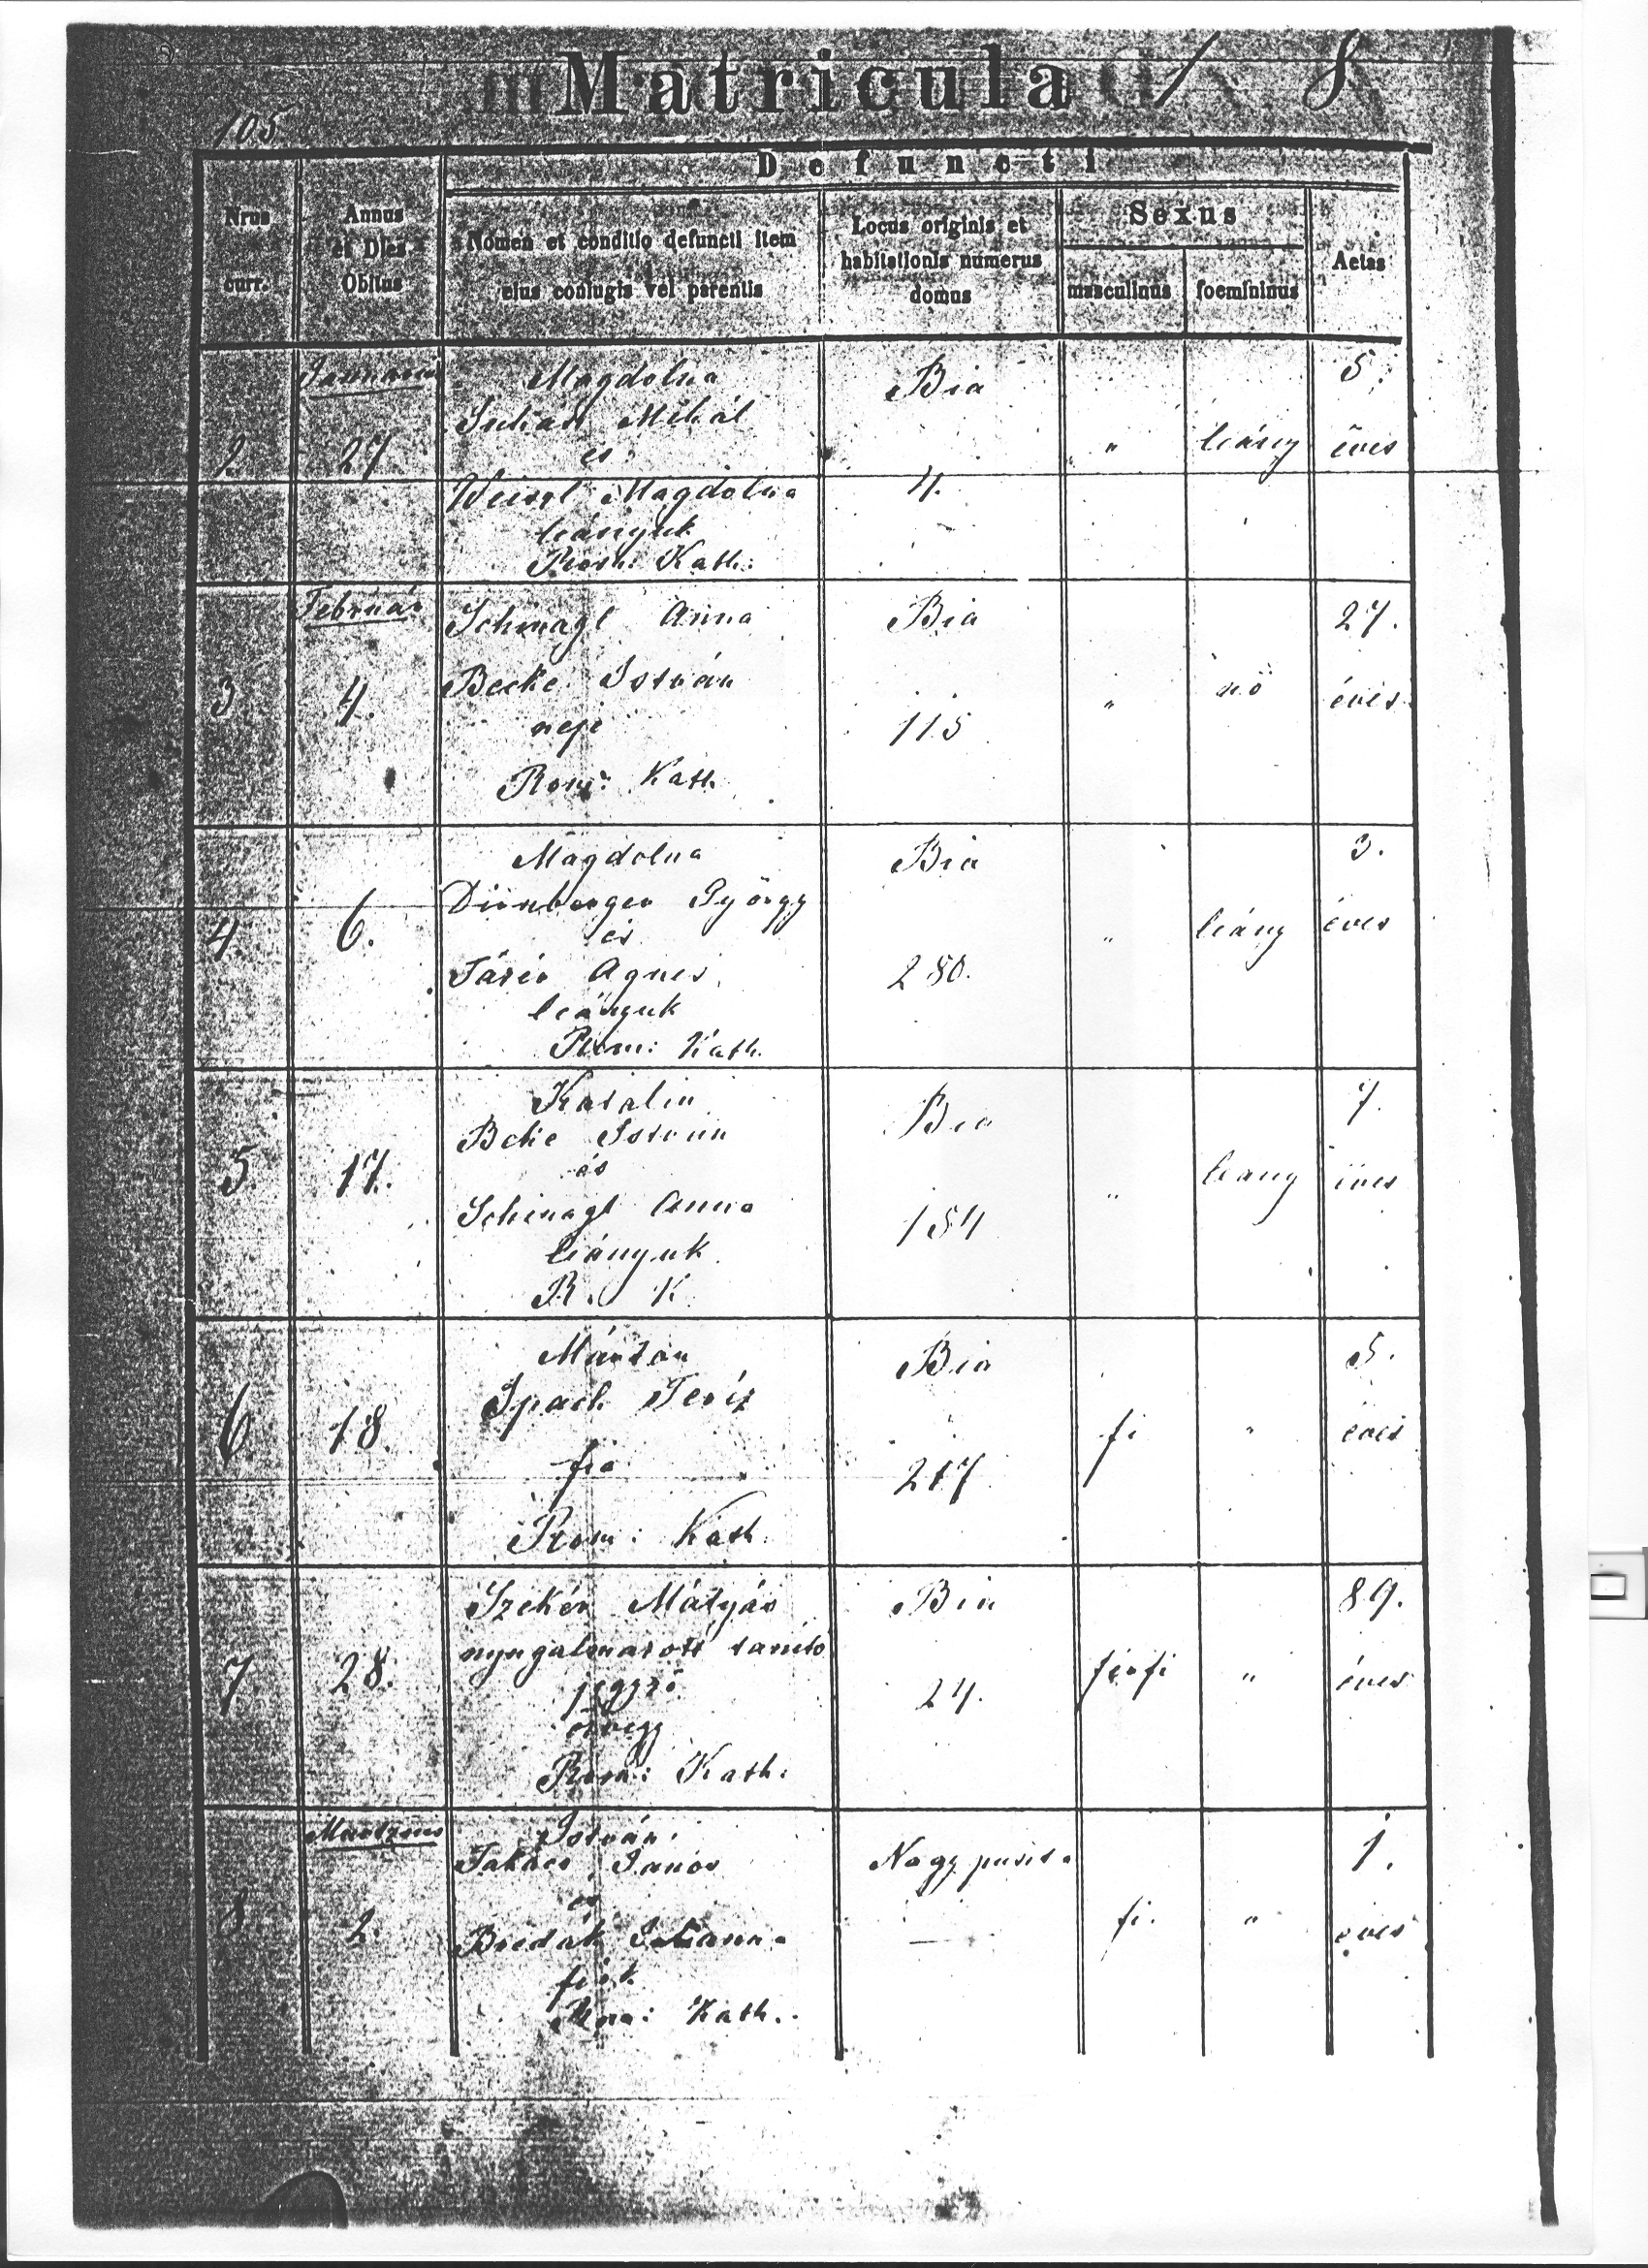 Matricula
8
105
Defuncti
Nrus curr.
Annus et Dies Obitus
Nomen et conditio defuncti item eius coniugis vel parentis
Locus originis et habitationis numerus domus
Sexus
masculinus
foemininus
Aetas
Januarius
2
27
Magdolna
Juhász Mihál
és
Magdolna
leányuk
Rom: Kath:
Bia
4.
"
leány
5
éves
Február
3
4.
Schinagl Anna
Becke István
neje
Rom: Kath
Bia
115
"
nő
27.
éves
4.
6.
Magdolna
György
és
Agnes
leányuk
Rom: Kath.
Bia
280.
"
leány
3.
éves
5
17.
Katalin
István
és
Schinagl Anna
leányuk
R. K
Bia
154
"
leany
7.
éves
6
18.
Márton
Spach Teréz
fia
Rom: Kath.
Bia
217
fi
"
5.
éves
7.
28.
Szekér Mátyás
nyugalmazott tanító
jegyző
özvegy
Rom: Kath:
Bia
24.
férfi
"
89.
éves
Martzius
8
2.
István
Takács János
és
fiok
Rom: Kath.
Nagy puszta
—
fi.
"
1.
éves